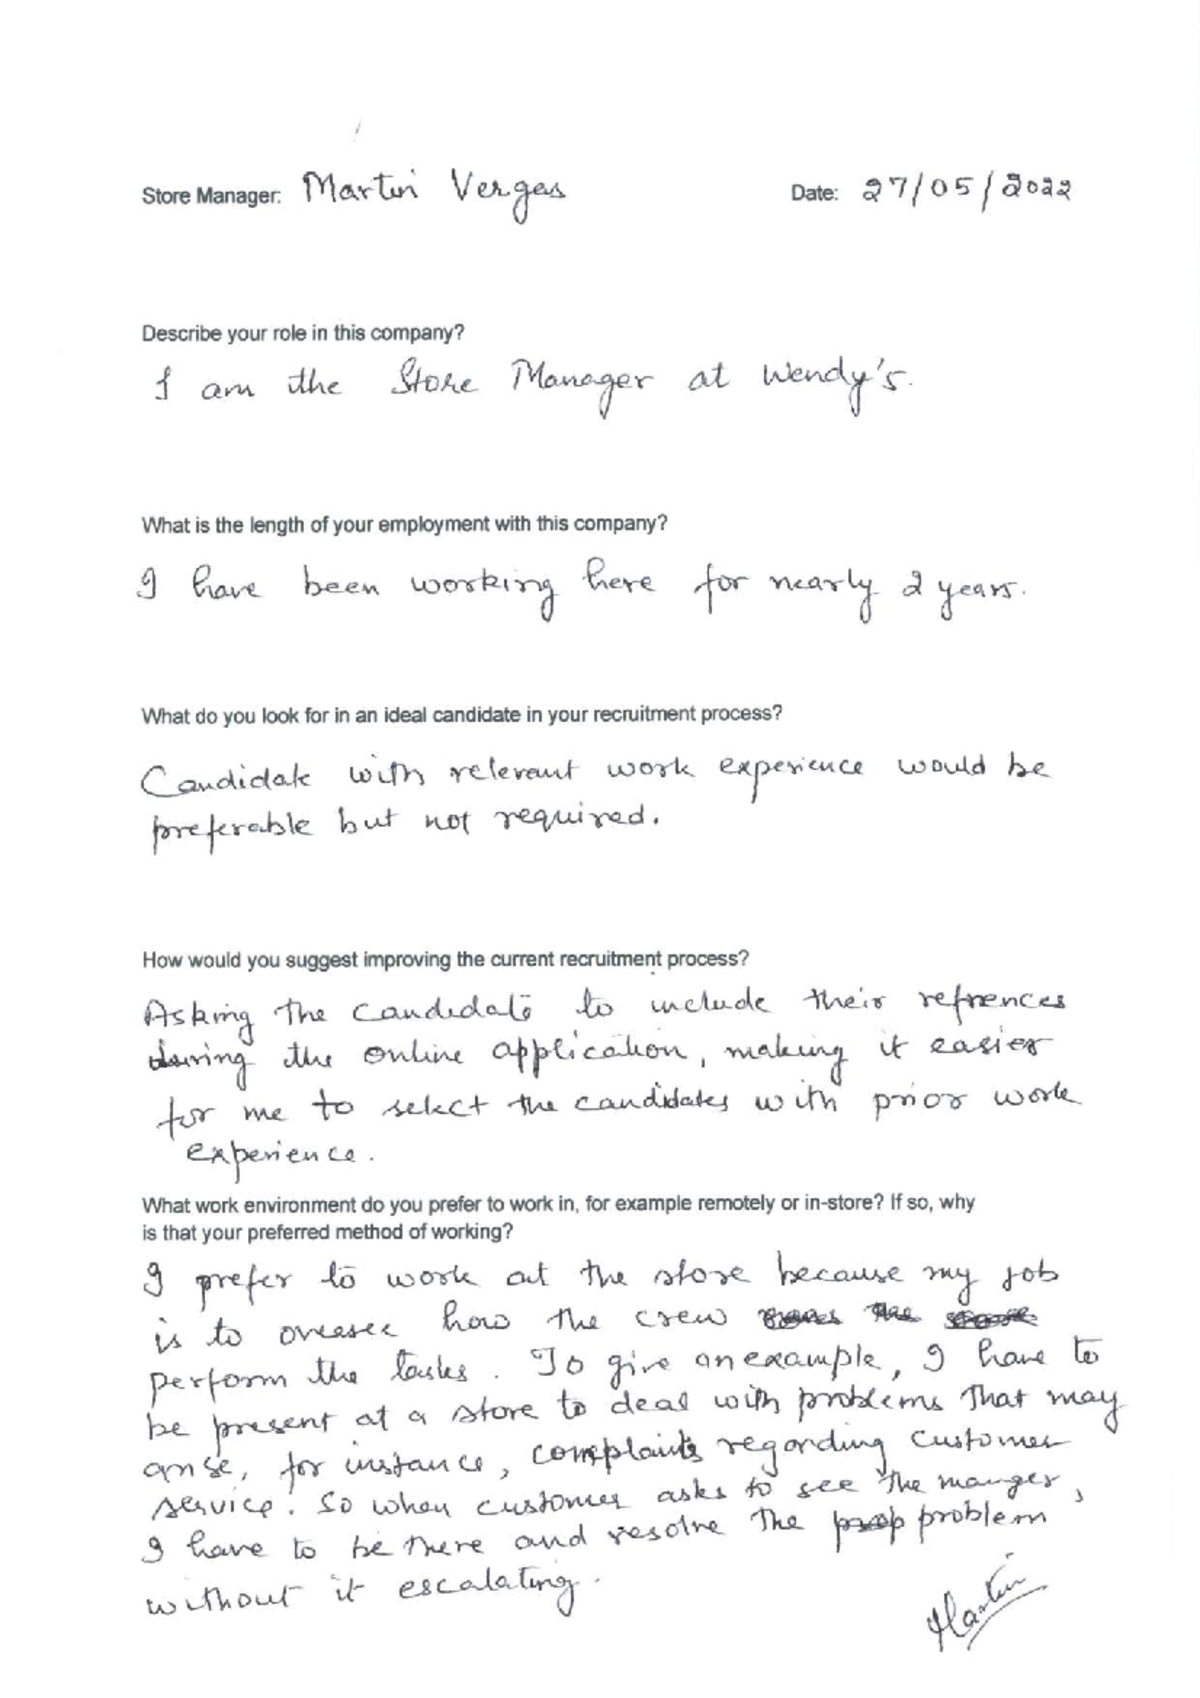 Store Manager: Martin Vergas Date: 27/05/2022
Describe your role in this company?
I am the Store Manager at Wendy's.
What is the length of your employment with this company?
I have been working here for nearly 2 years.
What do you look for in an ideal candidate in your recruitment process?
Candidate with relevant work experience would be
preferable but not required.
How would you suggest improving the current recruitment process?
Asking the candidate to include their refrences
during the online application, making it easier
for me to select the candidates with prior work
experience.
What work environment do you prefer to work in, for example remotely or in-store? If so, why
is that your preferred method of working?
I prefer to work at the store because my job
is to oversee how the crew
perform the tasks. To give an example, I have to
be present at a store to deal with problems that may
arise, for instance, complaints regarding customer
service. So when customer asks to see the manger,
I have to be there and resolve the problem
without it escalating.
Martin